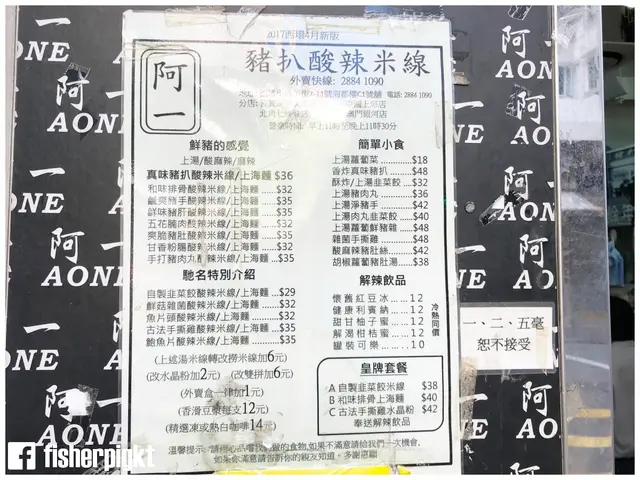 2017西環4月新版
阿一
豬扒酸辣米線
外賣快線: 2884 1090
電話: 2884 1090
營業時間: 早上11時至晚上11時30分
鮮豬的感覺
上湯/酸麻辣/麻辣
真味豬扒酸辣米線/上海麵 $36
和味排骨酸辣米線/上海麵 .....$32
鹹爽豬手酸辣米線/上海麵 .....$35
鮮味豬肝酸辣米線/上海麵 .....$35
五花腩肉酸辣米線/上海麵 .....$32
爽脆豬肚酸辣米線/上海麵 .....$35
甘香粉腸酸辣米線/上海麵 .....$32
手打豬肉丸 米線/上海麵 .....$35
馳名特別介紹
自製韭菜餃酸辣米線/上海麵 ...$29
鮮菇雜菌酸辣米線/上海麵 .....$32
魚片頭酸辣米線/上海麵 .....$32
古法手撕雞酸辣米線/上海麵 ...$35
鮑魚片酸辣米線/上海麵 .....$35
(上述湯米線轉改撈米線加6元)
(改水晶粉加2元) (改雙拼加6元)
(外賣盒一律加1元)
(香滑豆漿每支12元)
(精選凍或熱白咖啡14元)
簡單小食
上湯蘿蔔菜 ............$18
香炸真味豬扒 .........$48
酥炸/上湯韭菜餃 ....$32
上湯豬肉丸 ............$36
上湯淨豬手 ............$42
上湯肉丸韭菜餃 .....$40
上湯蘿蔔鮮豬雜 .....$48
雜菌手撕雞 ............$48
酸麻辣豬肚絲 .........$42
胡椒蘿蔔豬肚湯 .....$38
解辣飲品
懷舊紅豆冰 .... 12
健康利賓納 .... 12
甜甘柚子蜜 .... 12
解渴柑桔蜜 .... 12
罐裝可樂 ...... 10
冷熱同價
皇牌套餐
A 自製韭菜餃米線 $38
B 和味排骨上海麵 $40
C 古法手撕雞水晶粉 $42
奉送解辣飲品
溫馨提示:
如果你滿意請告訴你的親友知道。多謝惠顧
一、二、五毫
恕不接受
阿一
AONE
阿一
AONE
阿一
AONE
阿一
AONE
fisherpiykt